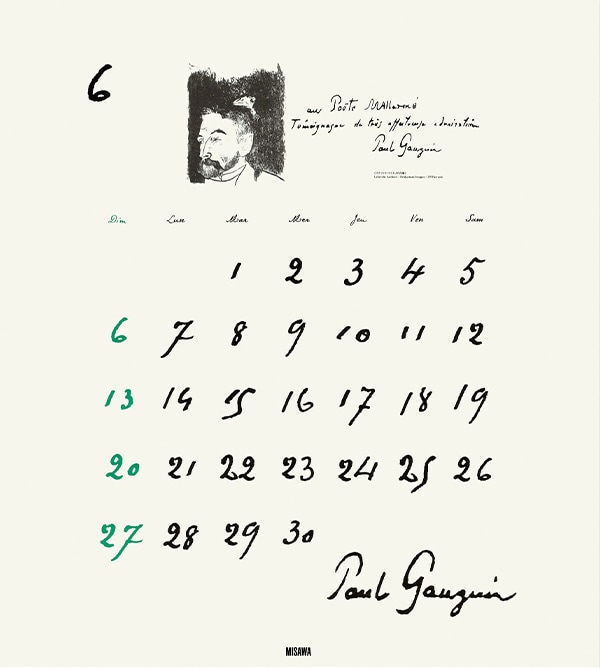 6
au Poète Mallarmé
Témoignage de très affectueuse admiration
Paul Gauguin
Dim Lun Mar Mer Jeu Ven Sam
1 2 3 4 5
6 7 8 9 10 11 12
13 14 15 16 17 18 19
20 21 22 23 24 25 26
27 28 29 30
Paul Gauguin
MISAWA